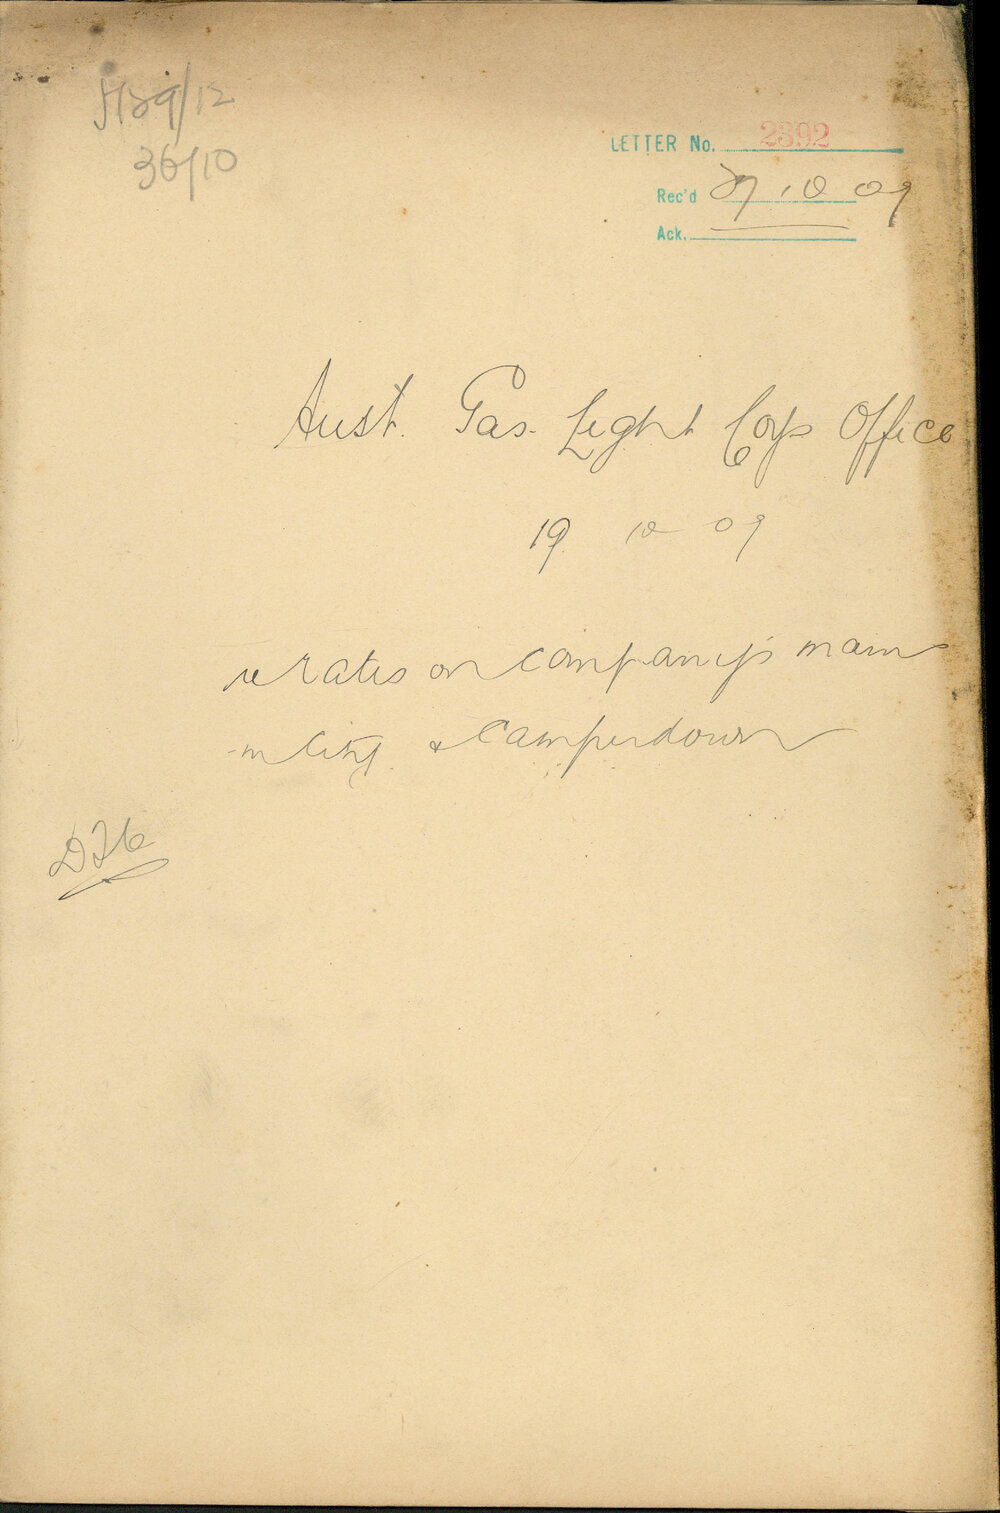 36/10
LETTER No. 2892
Rec'd 27.10 09
Ack.
Aust. Gas Light Coys Office
19 10 09
re Rates on Company's mains
in City & Camperdown